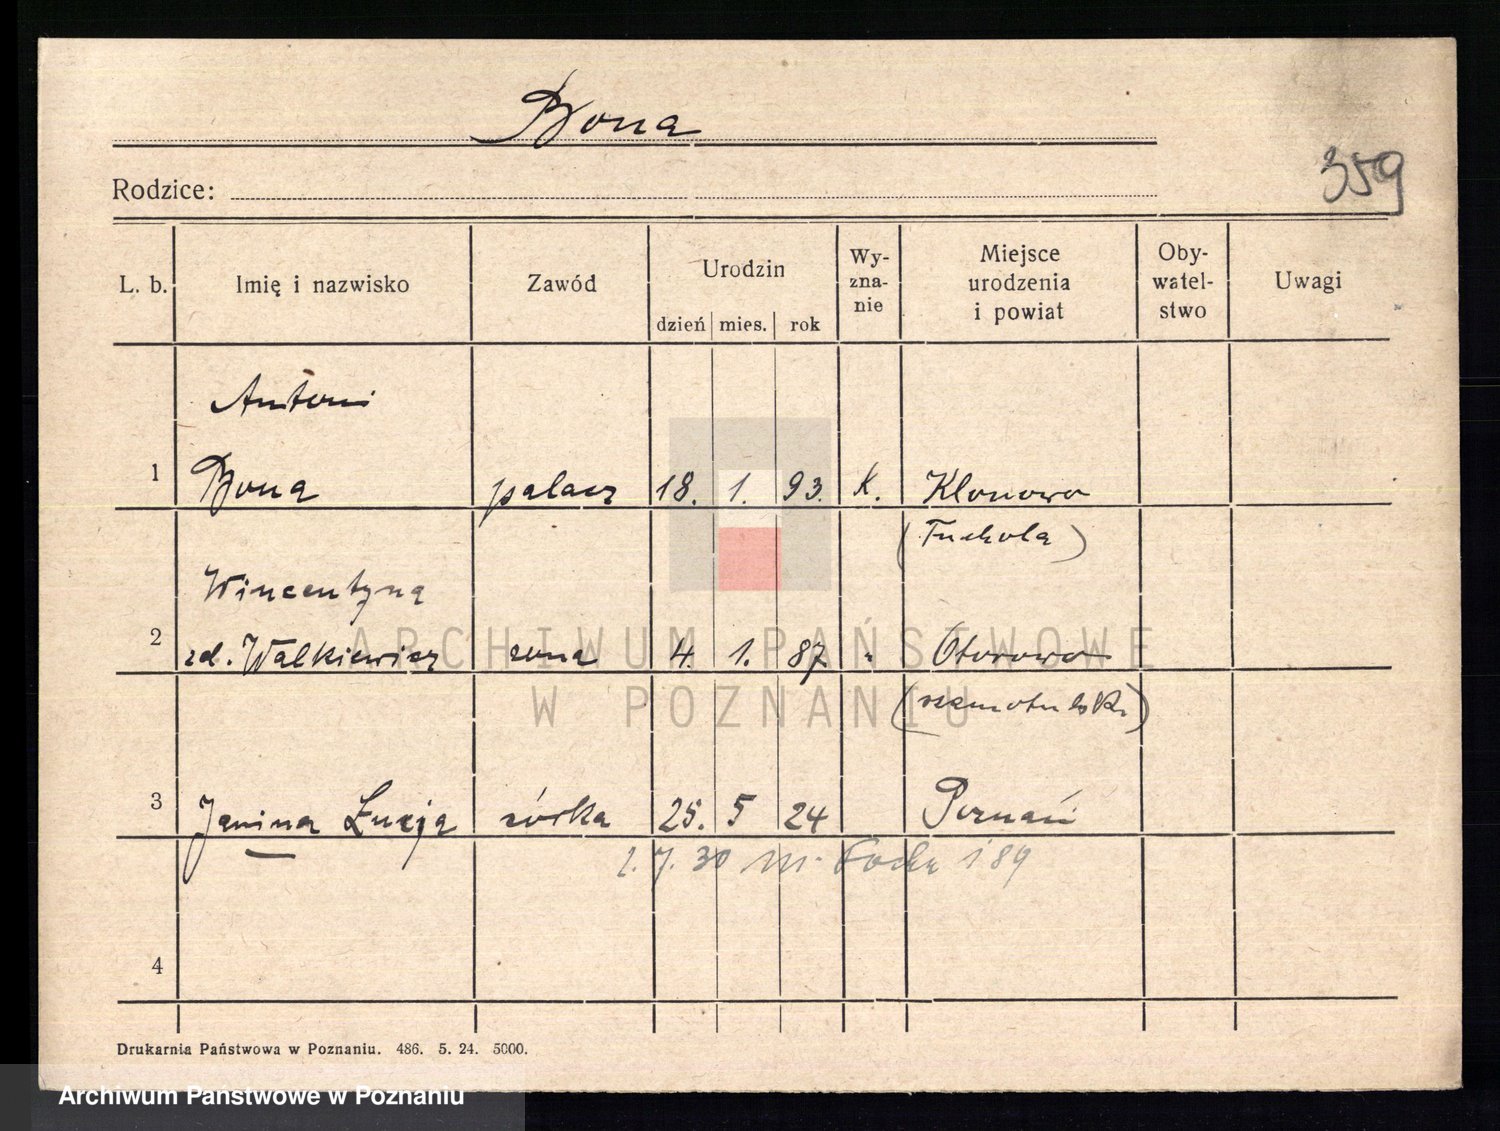 Bona
359
Rodzice:
L. b. Imię i nazwisko Zawód Urodzin dzień mies. rok Wy-zna-nie Miejsce urodzenia i powiat Oby-watel-stwo Uwagi
Antoni
1 Bona palacz 18. 1. 93. K. Klonowo
(Tuchola)
Wincentyna
2 zd. Walkiewicz żona 4. 1. 87 " Otorowo
(szamotulski)
3 Janina Łucja córka 25. 5 24 Poznań
2. 7. 30 m. Focha 189
4
Drukarnia Państwowa w Poznaniu. 486. 5. 24. 5000.
ARCHIWUM PAŃSTWOWE
W POZNANIU
Archiwum Państwowe w Poznaniu